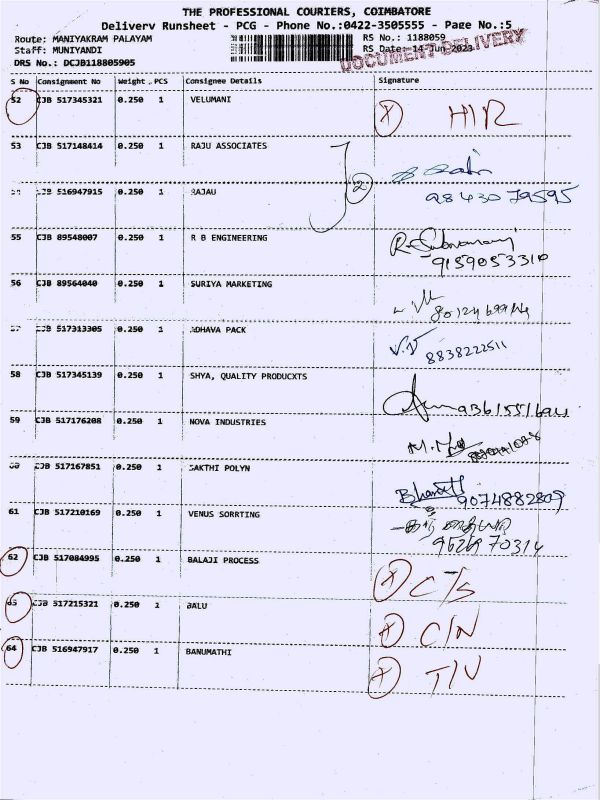 THE PROFESSIONAL COURIERS, COIMBATORE
Delivery Runsheet - PCG - Phone No.:0422-3505555 - Page No.:5
Route: MANIYAKRAM PALAYAM RS No.: 1188059
Staff: MUNIYANDI RS Date: 14-Jun-2023
DOCUMENT DELIVERY
DRS No.: DCJB118805905
S No Consignment No Weight PCS Consignee Details Signature
52 CJB 517345321 0.250 1 VELUMANI X H/R
53 CJB 517148414 0.250 1 RAJU ASSOCIATES
CJB 516947915 0.250 1 RAJAU 2 98430 79595
55 CJB 89548007 0.250 1 R B ENGINEERING
9159053310
56 CJB 89564040 0.250 1 SURIYA MARKETING
CJB 517313305 0.250 1 ADHAVA PACK V.V 8838222511
58 CJB 517345139 0.250 1 SHYA, QUALITY PRODUCXTS
59 CJB 517176208 0.250 1 NOVA INDUSTRIES
60 CJB 517167851 0.250 1 SAKTHI POLYN Bharath 9074882809
61 CJB 517210169 0.250 1 VENUS SORRTING
9626970314
62 CJB 517084995 0.250 1 BALAJI PROCESS X C/S
63 CJB 517215321 0.250 1 BALU X C/N
64 CJB 516947917 0.250 1 BANUMATHI X T/V